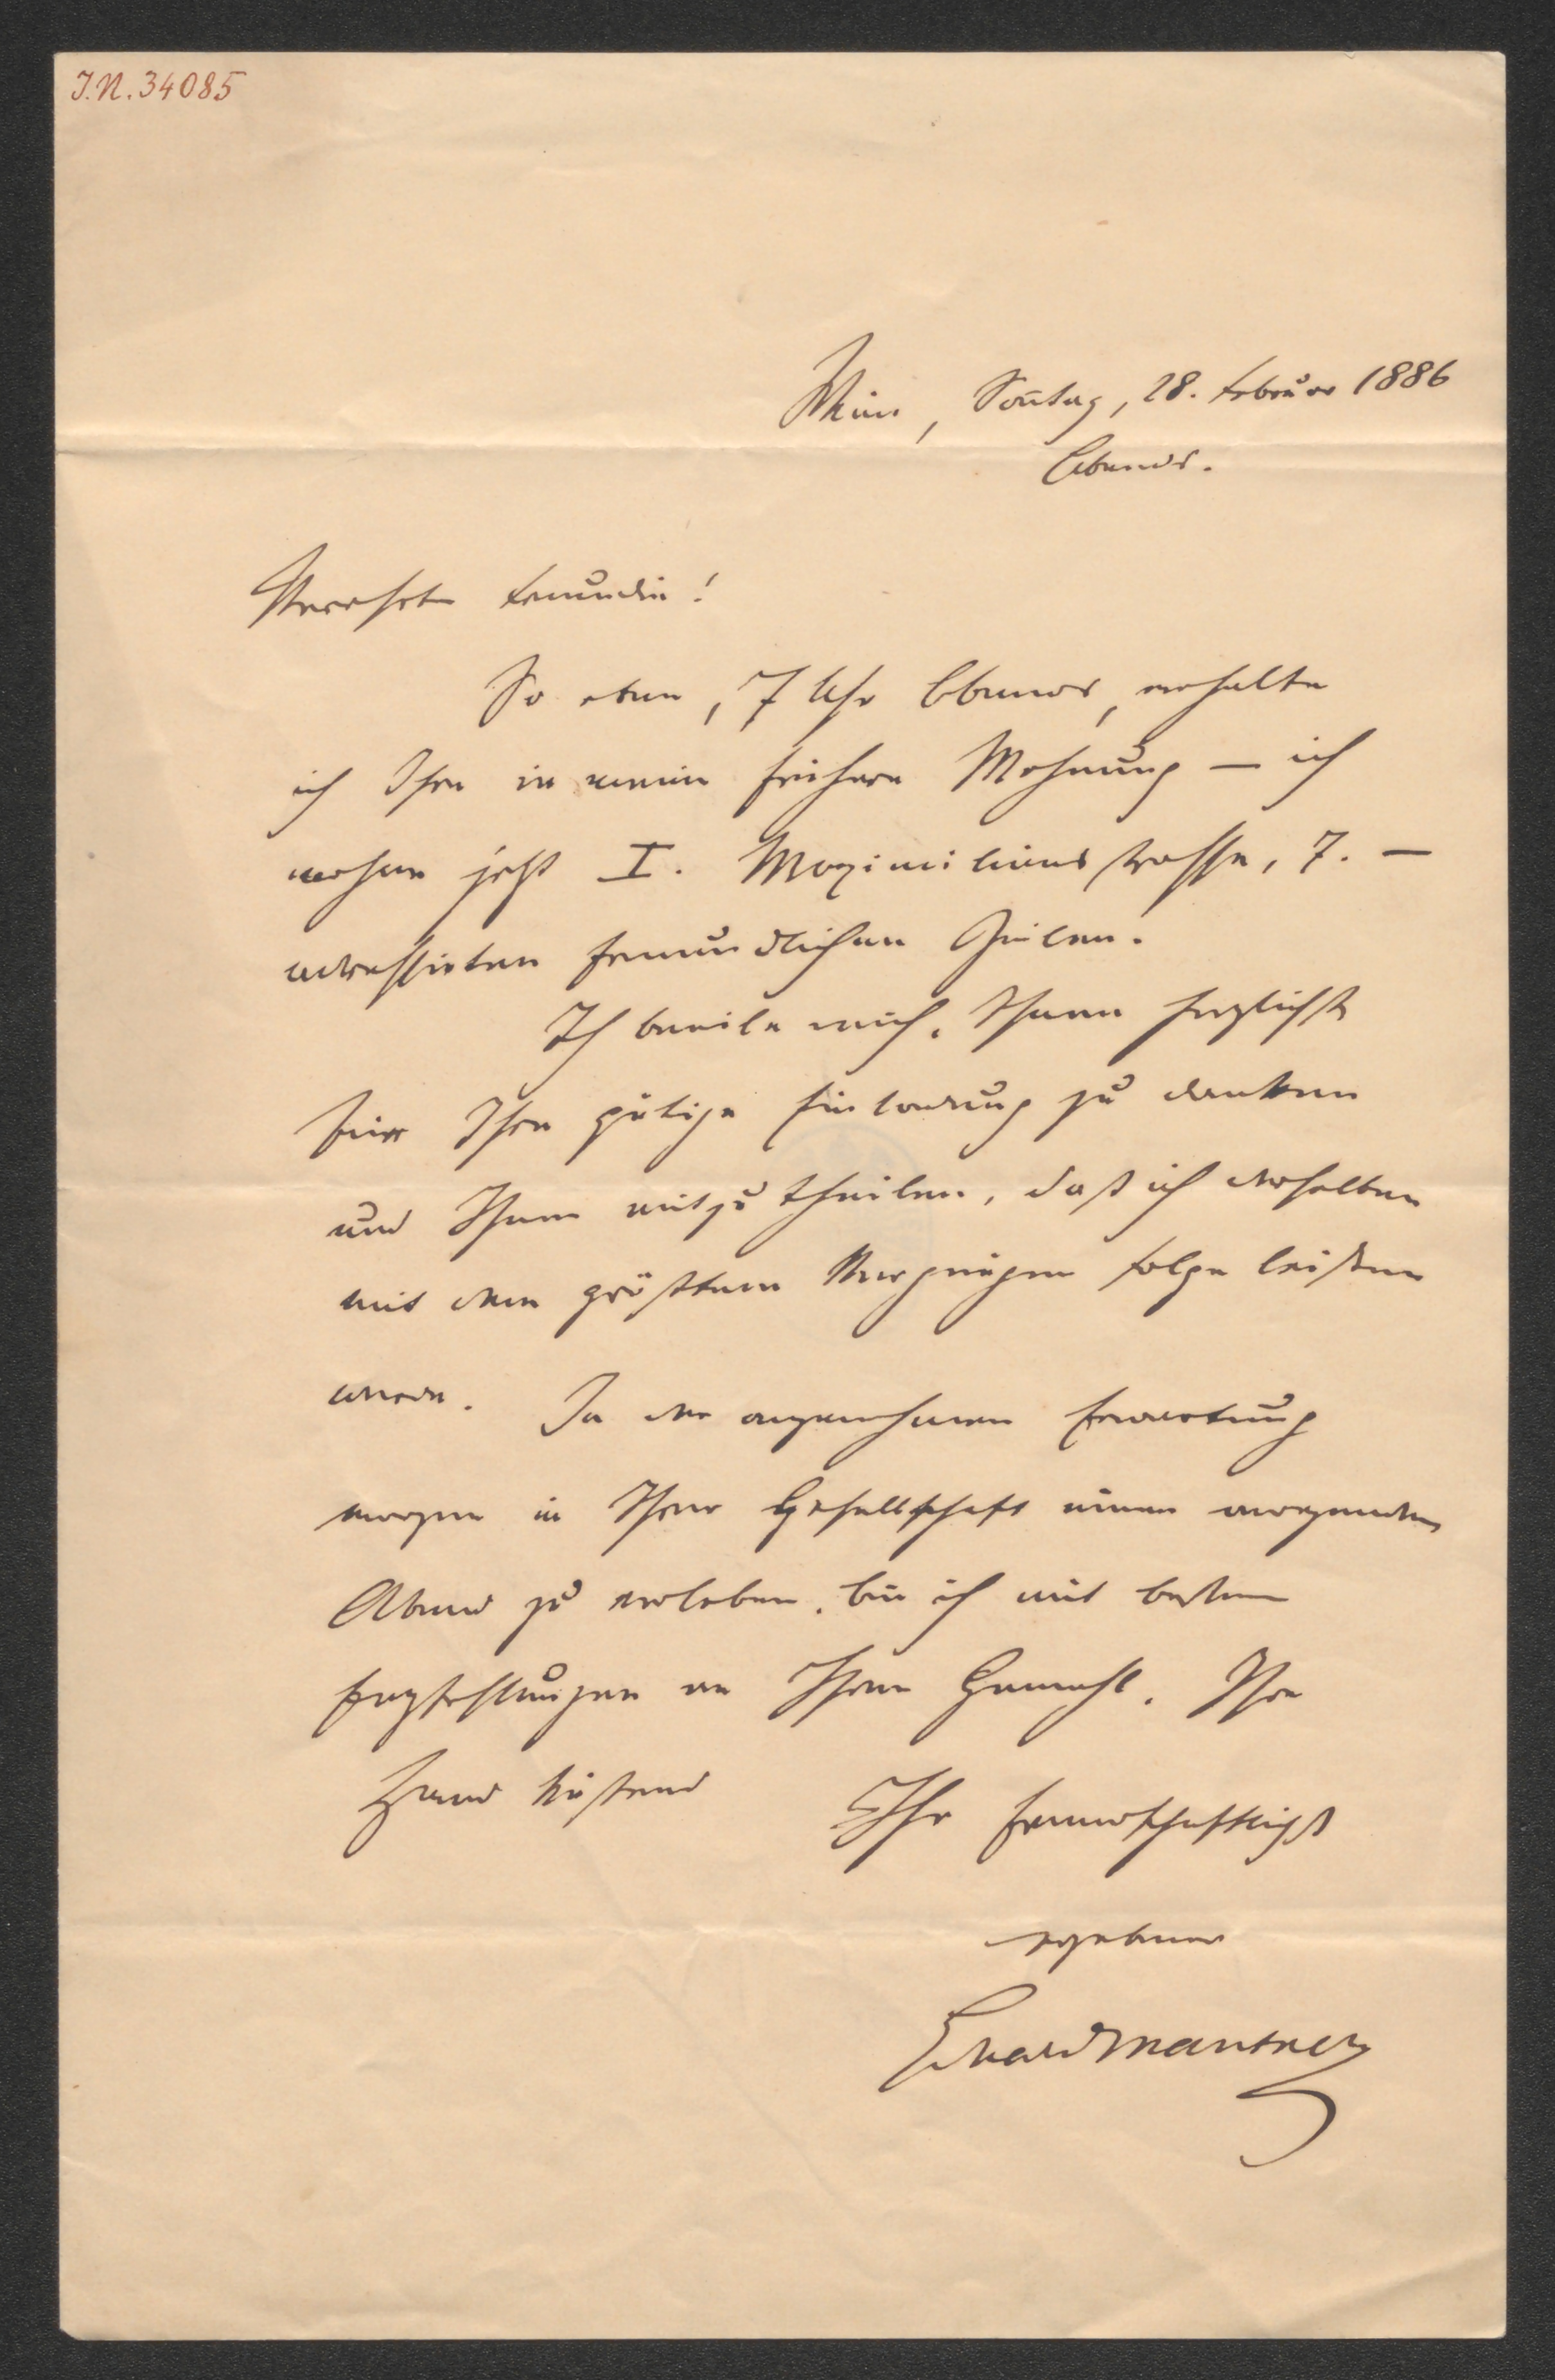 J.N. 34085
Wien, Son̄tag, 28. Februar 1886
Abends.
Verehrte Freundin!
So eben, 7 Uhr Abends, erhalte
ich Ihre in meine frühere Wohnung — ich
wohne jetzt I. Maximilianstrasse, 7. —
adressirten freundlichen Zeilen.
Ich beeile mich, Ihnen herzlichst
für Ihre gütige Einladung zu danken
und Ihnen mitzutheilen, daß ich derselben
mit dem größten Vergnügen Folge leisten
werde. In der angenehmen Erwartung
morgen in Ihrer Gesellschaft einen anregenden
Abend zu verleben, bin ich mit besten
Empfehlungen an Ihren Gemahl, Ihre
Hand küssend Ihr freundschaftlichst
ergebener
Eduard Mautner